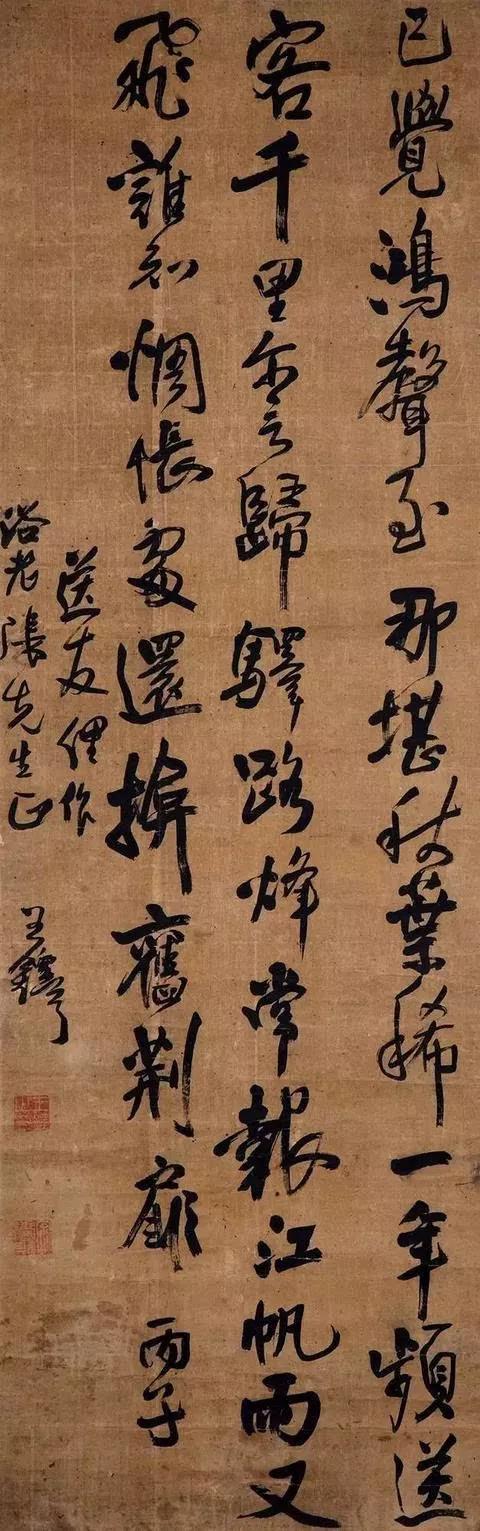 已覺鴻聲至那堪秋葉稀一年頻送
客千里尔言歸驛路烽常報江帆雨又
飛誰知惆悵處還揜舊荊扉 丙子
送友俚作
老張先生正 王鐸